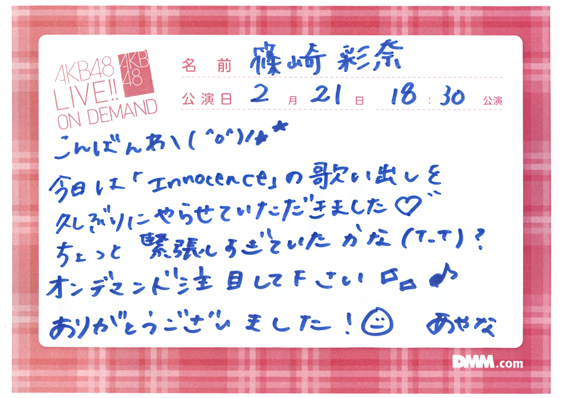 AKB48
LIVE!!
ON DEMAND
AKB
48
名前 篠崎 彩奈
公演日 2月21日 18:30公演
こんばんわ\(^o^)/★★
今日は「Innocence」の歌い出しを
久しぶりにやらせていただきました♡
ちょっと緊張しすぎていたかな(T_T)?
オンデマンド注目して下さい♪
ありがとうございました!☺ あやな
DMM.com